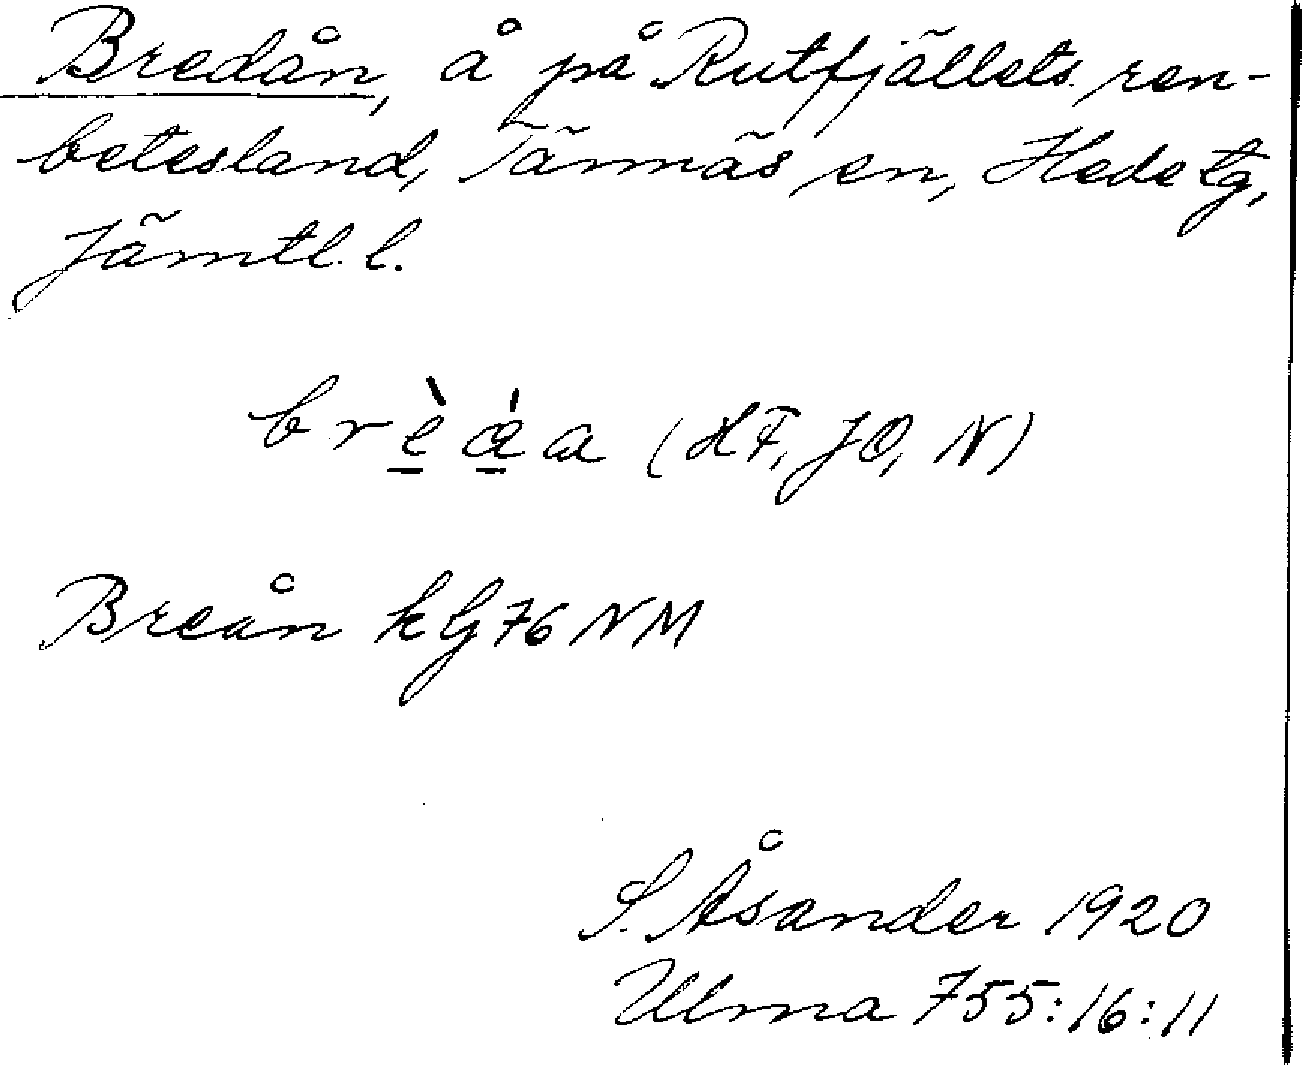 Bredån, å på Rutfjällets ren-
betesland, Tännäs sn, Hede tg,
Jämtl. l.
brèœ́a (HF, JO, N)
Breån kG76NM
S. Åsander 1920
Ulma 755:16:11